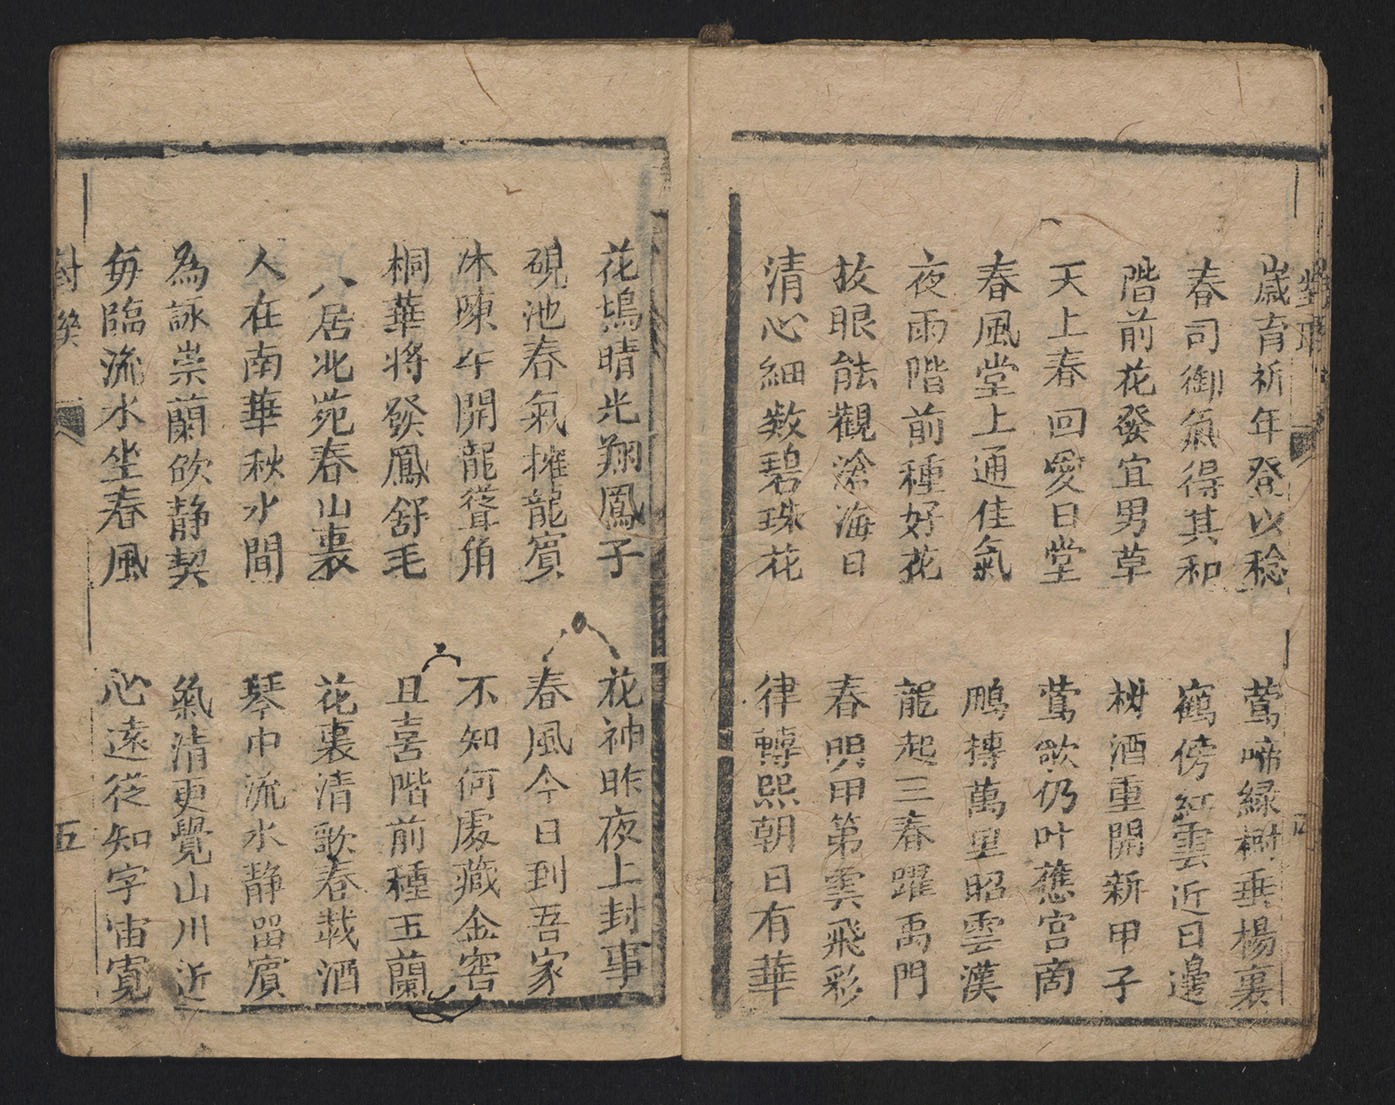 歲育祈年登以稔
春司御氣得其和
階前花發宜男草
天上春回愛日堂
春風堂上通佳氣
夜雨階前種好花
放眼能觀滄海日
清心細数碧珠花
鶯啼緑樹垂楊裏
鶴傍紅雲近日邊
樹酒重開新甲子
鶯歌仍叶舊宫商
鵬摶萬里昭雲漢
龍起三春躍禹門
春明甲第雲飛彩
律轉熙朝日有華
花塢晴光翔鳳子
硯池春氣擁龍賓
陳年開龍聳角
桐華将發鳳舒毛
人居北苑春山裏
人在南華秋水間
為詠崇蘭欣静契
每臨流水坐春風
花神昨夜上封事
春風今日到吾家
不知何處藏金窖
且喜階前種玉蘭
花裏清歌春載酒
琴中流水静留賓
氣清更覺山川近
心遠從知宇宙寬
對聯
五